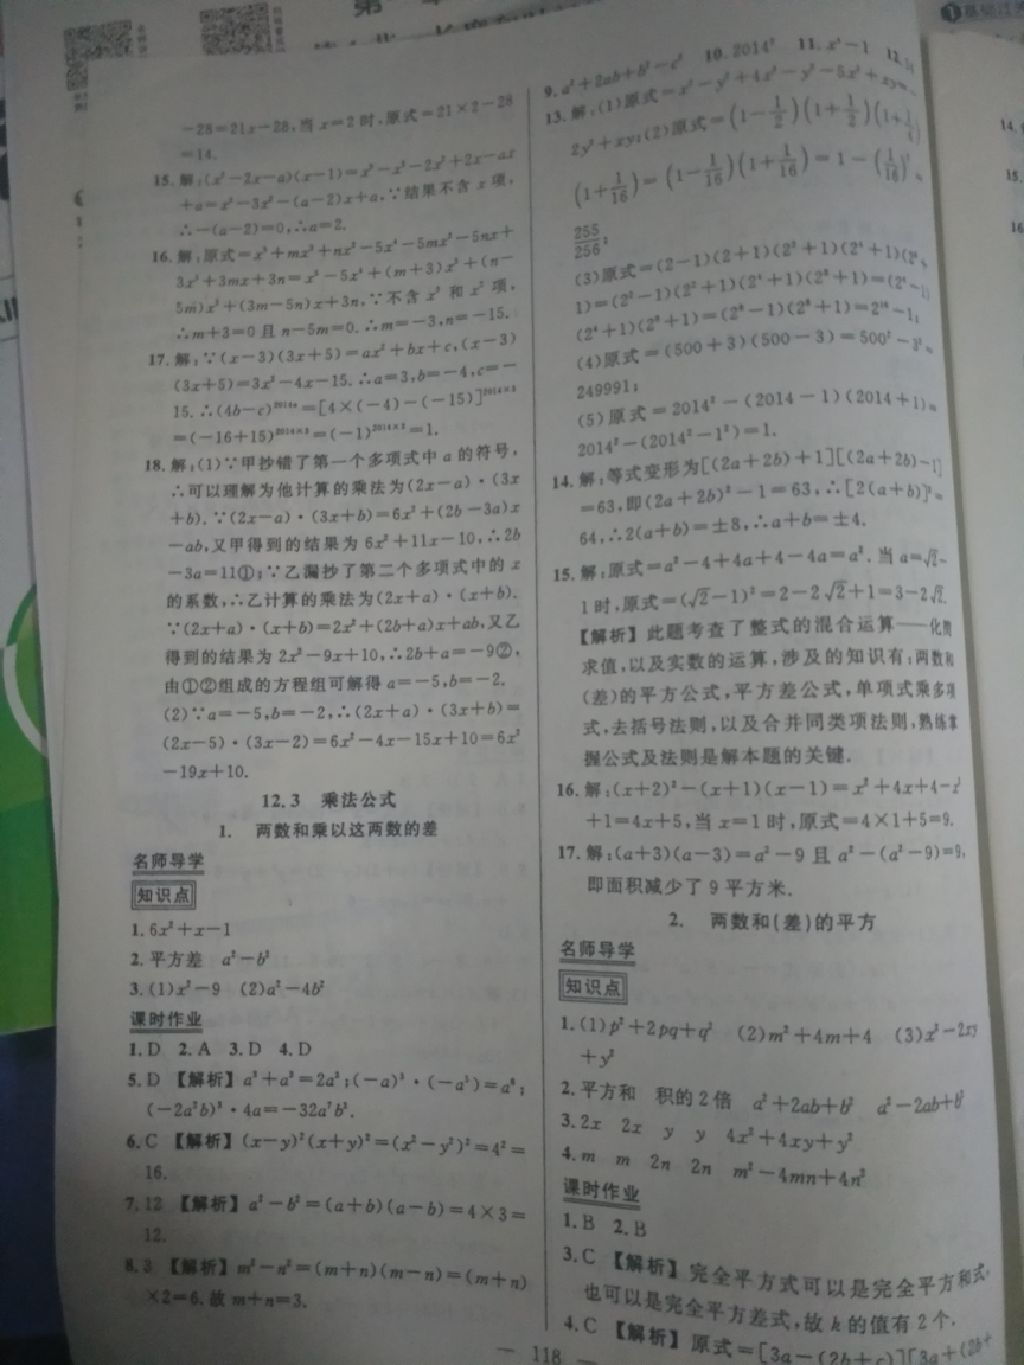 -28=21x-28,当 x=2 时,原式=21×2-28
=14.
15.解:(x²-2x-a)(x-1)=x³-x²-2x²+2x-ax
+a=x³-3x²-(a-2)x+a,∵结果不含 x 项,
∴-(a-2)=0,∴a=2.
16.解:原式=x⁴+mx³+nx²-5x³-5mx²-5nx+
3x²+3mx+3n=x⁴-5x³+(m+3)x²+(n-
∴m+3=0 且 n-5m=0.∴m=-3,n=-15.
17.解:∵(x-3)(3x+5)=ax²+bx+c,(x-3)
(3x+5)=3x²-4x-15.∴a=3,b=-4,c=-
=(-16+15)²⁰¹⁴ˣ³=(-1)²⁰¹⁴ˣ³=1.
18.解:(1)∵甲抄错了第一个多项式中 a 的符号,
∴可以理解为他计算的乘法为(2x-a)·(3x
+b).∵(2x-a)·(3x+b)=6x²+(2b-3a)x
-ab,又甲得到的结果为 6x²+11x-10,∴2b
-3a=11①;∵乙漏抄了第二个多项式中的 x
的系数,∴乙计算的乘法为(2x+a)·(x+b).
∵(2x+a)·(x+b)=2x²+(2b+a)x+ab,又乙
得到的结果为 2x²-9x+10,∴2b+a=-9②,
由①②组成的方程组可解得 a=-5,b=-2.
(2)∵a=-5,b=-2,∴(2x+a)·(3x+b)=
(2x-5)·(3x-2)=6x²-4x-15x+10=6x²
-19x+10.
12.3 乘法公式
1. 两数和乘以这两数的差
名师导学
知识点
1.6x²+x-1
2.平方差 a²-b²
3.(1)x²-9 (2)a²-4b²
课时作业
1.D 2.A 3.D 4.D
5.D 【解析】a³+a³=2a³;(-a)³·(-a⁵)=a⁸;
(-2a²b)³·4a=-32a⁷b³.
6.C 【解析】(x-y)²(x+y)²=(x²-y²)²=4²=
16.
7.12 【解析】a²-b²=(a+b)(a-b)=4×3=
12.
8.3 【解析】m²-n²=(m+n)(m-n)=(m+n)
×2=6.故 m+n=3.
9.a²+2ab+b²-c² 10.2014² 11.x⁴-1
13.解:(1)原式=x²-y²+4x²-y²-5x²+xy=-
2y²+xy;(2)原式=(1-1/2)(1+1/2)(1+1/4)
(1+1/16)=(1-1/16)(1+1/16)=1-(1/16)²=
255/256;
(3)原式=(2-1)(2+1)(2²+1)(2⁴+1)(2⁸+
1)=(2²-1)(2²+1)(2⁴+1)(2⁸+1)=(2⁴-1)
(2⁴+1)(2⁸+1)=(2⁸-1)(2⁸+1)=2¹⁶-1;
(4)原式=(500+3)(500-3)=500²-3²=
249991;
(5)原式=2014²-(2014-1)(2014+1)=
2014²-(2014²-1²)=1.
14.解:等式变形为[(2a+2b)+1][(2a+2b)-1]
=63,即(2a+2b)²-1=63,∴[2(a+b)]²=
64,∴2(a+b)=±8,∴a+b=±4.
15.解:原式=a²-4+4a+4-4a=a².当 a=√2-
1时,原式=(√2-1)²=2-2√2+1=3-2√2.
【解析】此题考查了整式的混合运算——化简
求值,以及实数的运算,涉及的知识有:两数和
(差)的平方公式,平方差公式,单项式乘多项
式,去括号法则,以及合并同类项法则,熟练掌
握公式及法则是解本题的关键.
16.解:(x+2)²-(x+1)(x-1)=x²+4x+4-x²
+1=4x+5,当 x=1 时,原式=4×1+5=9.
17.解:(a+3)(a-3)=a²-9 且 a²-(a²-9)=9,
即面积减少了 9 平方米.
2. 两数和(差)的平方
名师导学
知识点
1.(1)p²+2pq+q² (2)m²+4m+4 (3)x²-2xy
+y²
2.平方和 积的2倍 a²+2ab+b² a²-2ab+b²
3.2x 2x y y 4x²+4xy+y²
4.m m 2n 2n m²-4mn+4n²
课时作业
1.B 2.B
3.C 【解析】完全平方式可以是完全平方和式,
也可以是完全平方差式,故 k 的值有 2 个.
4.C 【解析】原式=[3a-(2b+c)][3a+(2b+
— 118 —
14.
15.
16